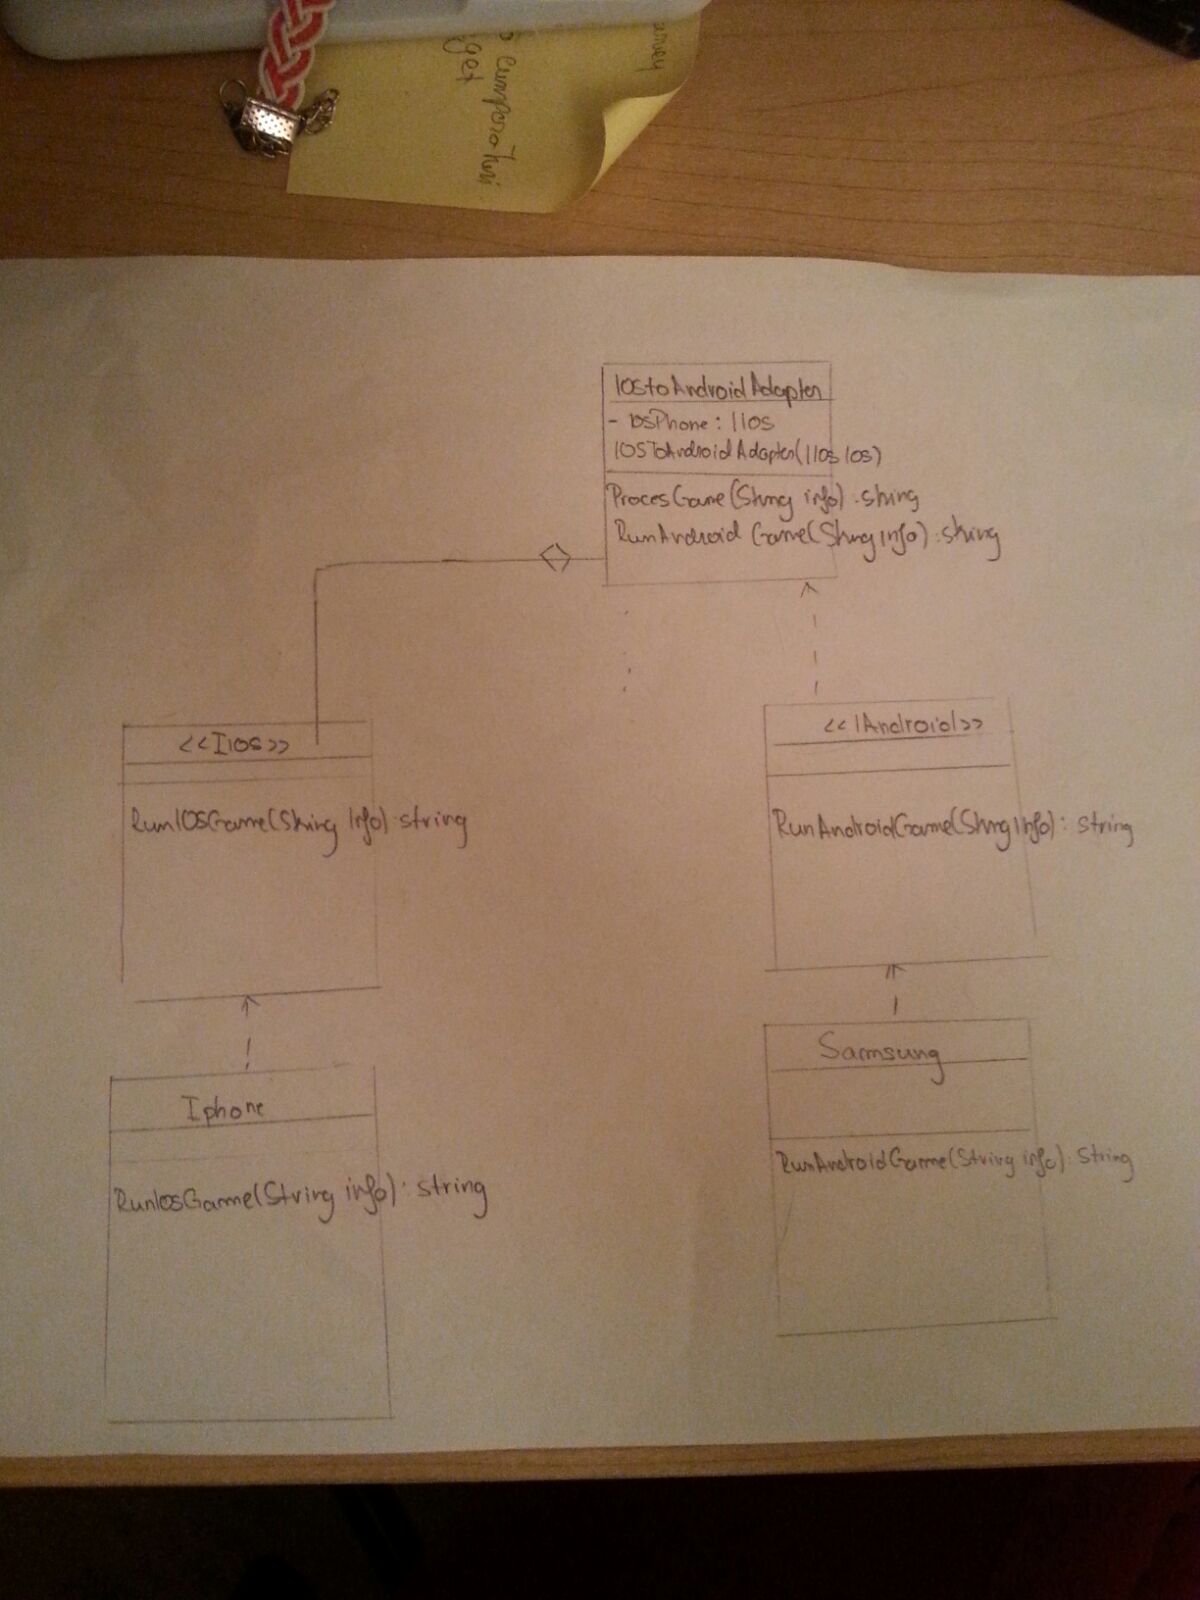 get
IOStoAndroidAdapter
- IosPhone : IIOS
IOSToAndroidAdapter(IIos Ios)
ProcesGame(String info) : string
RunAndroid Game(String Info) : string
<<IIOS>>
RunIOSGame(String Info) : string
<<IAndroid>>
RunAndroidGame(String Info) : string
Iphone
RunIosGame(String info) : string
Samsung
RunAndroidGame(String info) : string